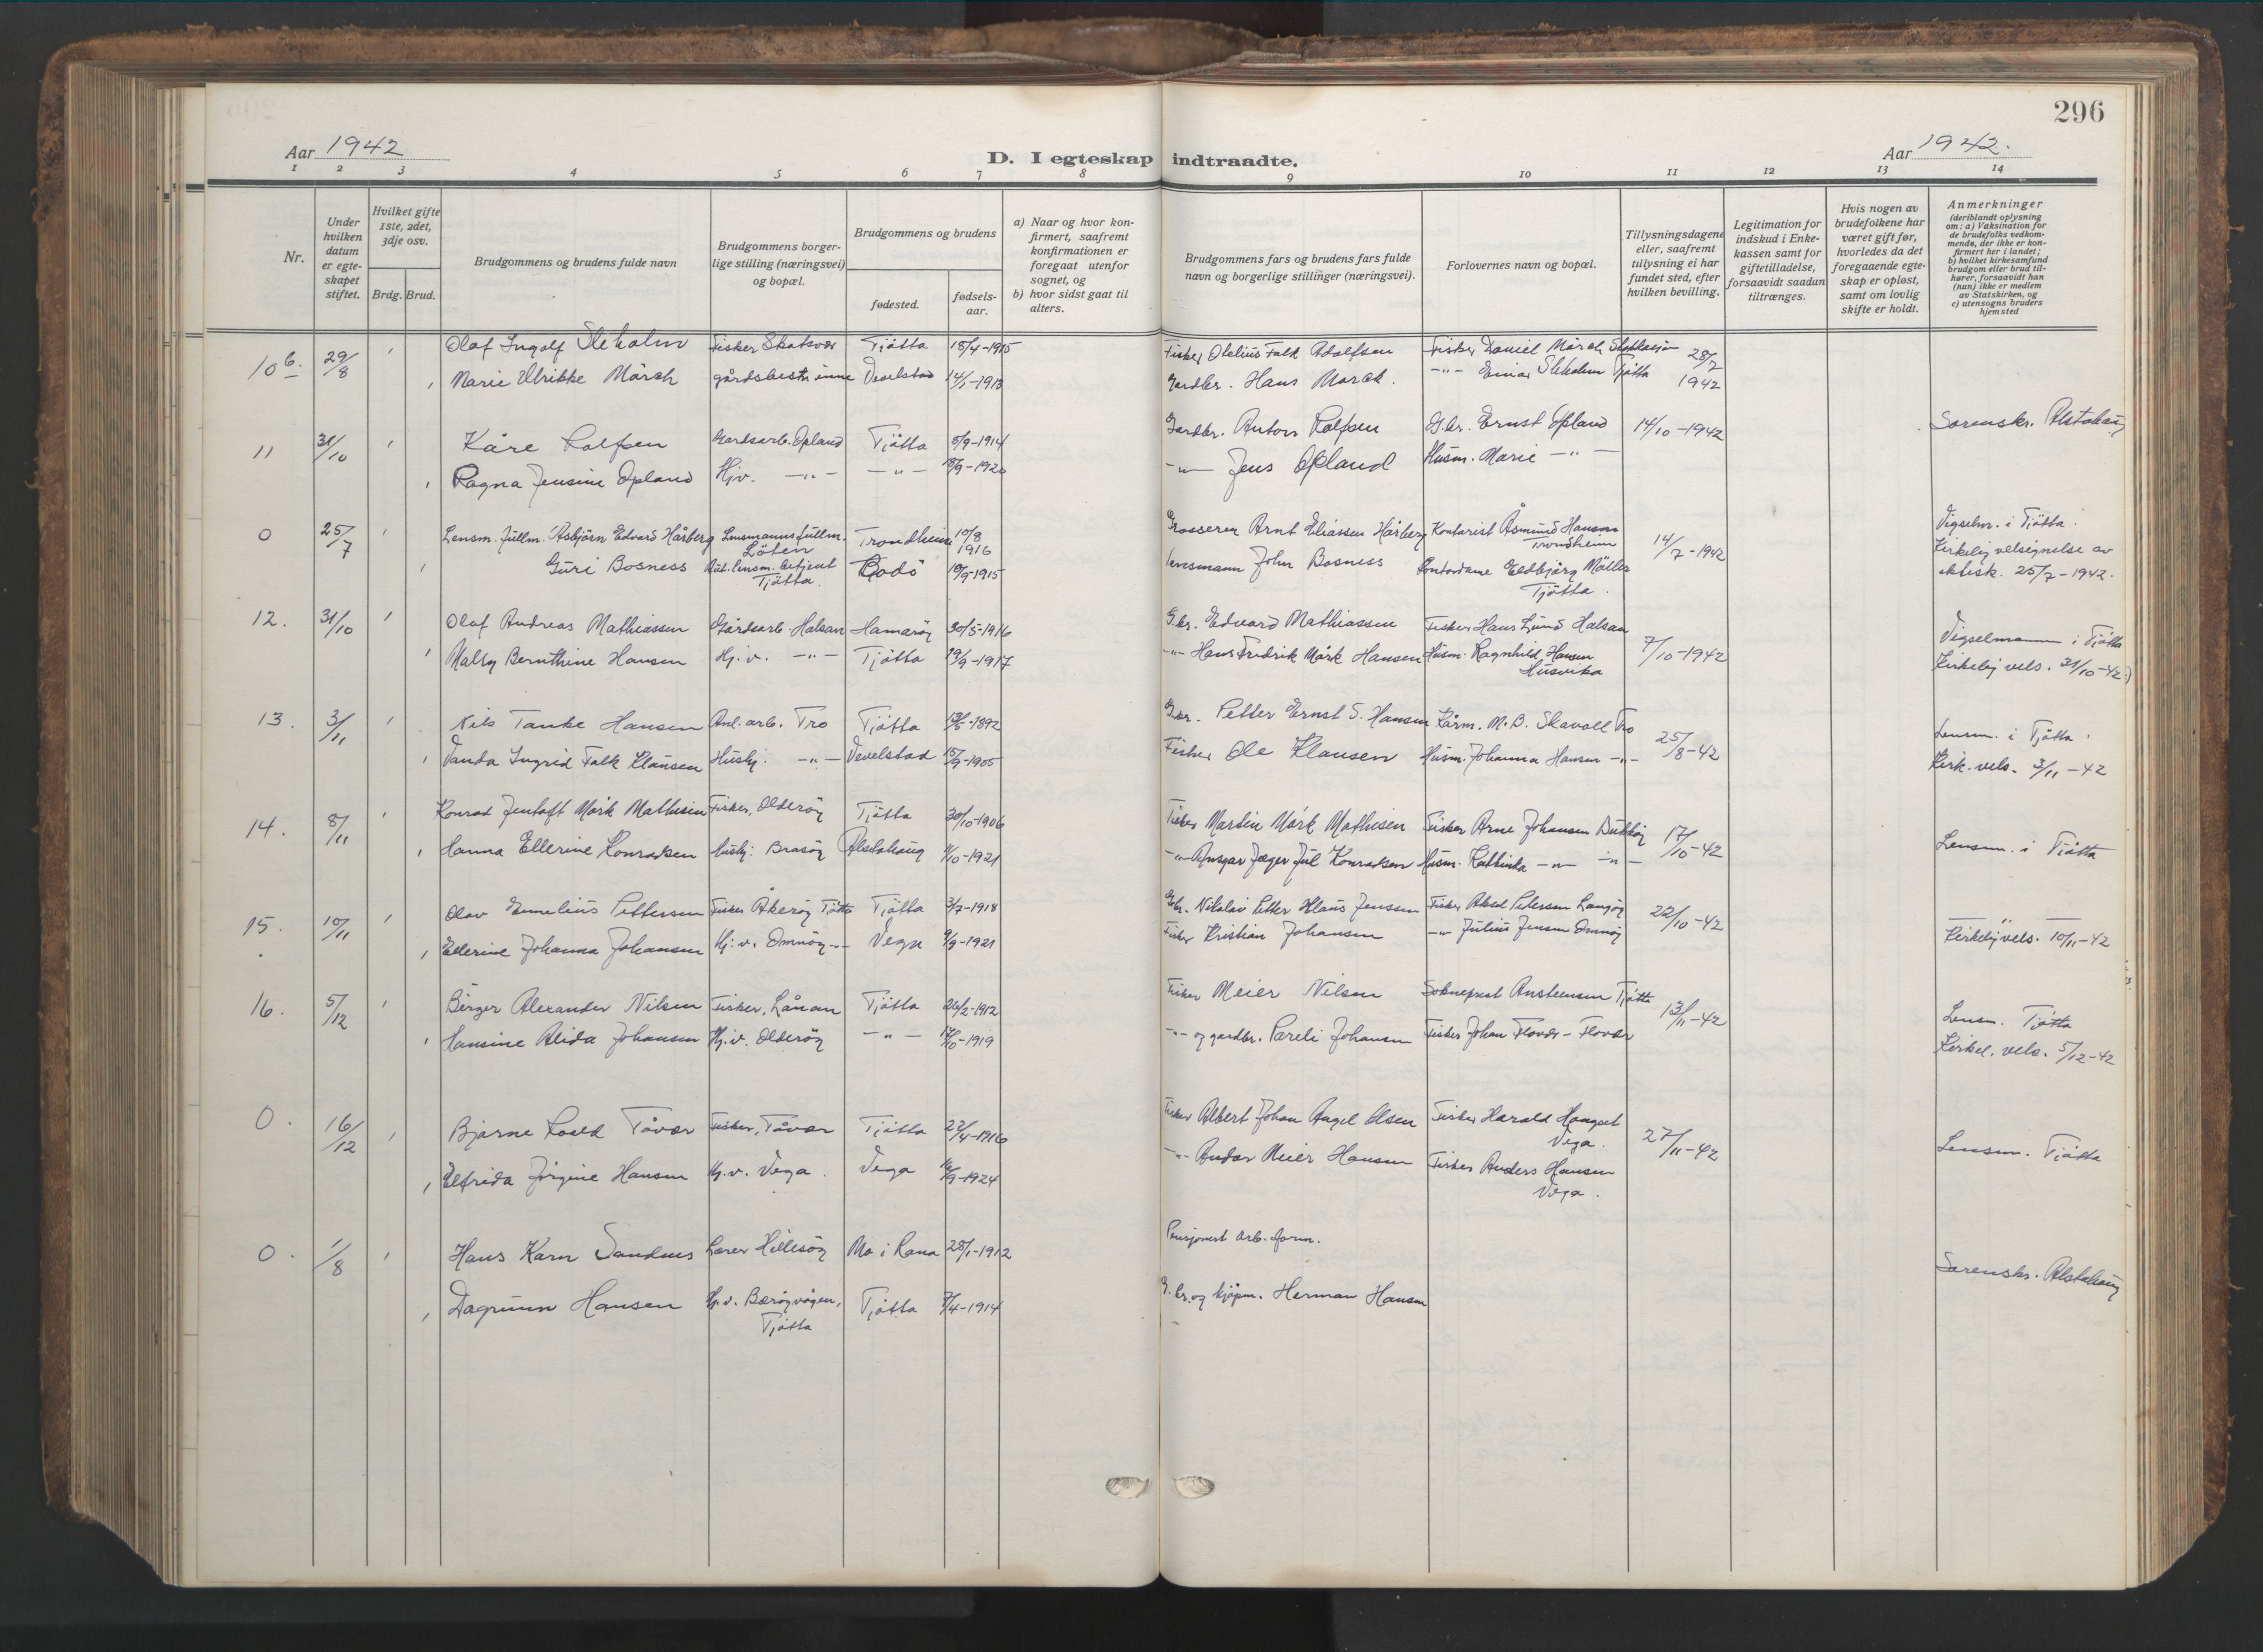 296
Aar 1942
D. I egteskap indtraadte.
Aar 1942.
1 2 3 4 5 6 7 8 9 10 11 12 13 14
Nr.
Under hvilken datum er egteskapet stiftet.
Hvilket gifte 1ste, 2det, 3dje osv.
Brdg. Brud.
Brudgommens og brudens fulde navn
Brudgommens borgerlige stilling (næringsvei) og bopæl.
Brudgommens og brudens
fødested.
fødselsaar.
a) Naar og hvor konfirmert, saafremt konfirmationen er foregaat utenfor sognet, og
b) hvor sidst gaat til alters.
Brudgommens fars og brudens fars fulde navn og borgerlige stillinger (næringsvei).
Forlovernes navn og bopæl.
Tillysningsdagene eller, saafremt tillysning ei har fundet sted, efter hvilken bevilling.
Legitimation for indskud i Enkekassen samt for giftetilladelse, forsaavidt saadan tiltrænges.
Hvis nogen av brudefolkene har været gift før, hvorledes da det foregaaende egteskap er opløst, samt om lovlig skifte er holdt.
Anmerkninger
(deriblandt oplysning om: a) Vaksination for de brudefolks vedkommende, der ikke er konfirmert her i landet; b) hvilket kirkesamfund brudgom eller brud tilhører, forsaavidt han (hun) ikke er medlem av Statskirken, og c) utensogns bruders hjemsted
10 b. 29/8 1 Olaf Ingolf Sleholm Fisker Skotsvær Tjøtta 18/4-1915 Fisker Otelius Falk Adolfsen Fisker Daniel Mörch 28/7 1942
1 Marie Ulrikke Mörch gårdsbestyrinne Vevelstad 14/1-1913 Gardbr. Hans Morch. -"- Einar Sleholm Tjøtta
11 31/10 1 Kåre Rolfsen Gardsarb. Opland Tjøtta 5/9-1914 Gardbr. Anton Rolfsen G.br. Ernst Opland 14/10-1942 Sorenskr. Alstahaug
1 Ragna Jensine Opland Hj.v. -"- -"- 18/9-1920 -"- Jens Opland Husm. Marie -"-
0 25/7 1 Lensm. fullm. Asbjörn Edvard Hårberg Lensmannsfullm. Löten Trondheim 10/8 1916 Grosserer Arnt Eliassen Hårberg Kontorist Åsmund Hansen Trondheim 14/7-1942 Vigselm. i Tjøtta.
1 Guri Bosness Aut. lensm. betjent Tjøtta. Bodö 10/9-1915 lensmann John Bosness Kontordame Eldbjørg Möller Tjøtta. Kirkelig velsignelse av 25/7-1942.
12. 31/10 1 Olaf Andreas Mathiassen Gårdsarb. Halsan Hamarøy 30/5-1916 G.br. Edvard Mathiassen Fisker Hans Lund Halsan 7/10-1942 Vigselmann i Tjøtta
1 Malsy Bernthine Hansen Hj.v. -"- Tjøtta 19/9-1917 -"- Hans Fredrik Mörk Hansen Husm. Ragnhild Hansen Husvika Kirkelig vels. 31/10-42
13. 3/11 1 Nils Tanke Hansen Anl. arb. Tro Tjøtta 13/5-1892 G.br. Petter Ernst S. Hansen Kårm. M. B. Skavoll Tro 25/8-42 Lensm. i Tjøtta.
1 Vanda Ingrid Falk Klausen Hushj. -"- Vevelstad 15/9-1905 Fisker Ole Klausen Husm. Johanna Hansen -"- Kirk. vels. 3/11-42
14. 8/11 1 Konrad Jentoft Mörk Mathisen Fisker, Olderöy Tjøtta 30/10-1906 Fisker Martin Mörk Mathisen Fisker Arne Johansen 17/10-42 Lensm. i Tjøtta
1 Hanna Ellerine Konradsen Hushj. Brasöy Alstahaug 1/10-1921 -"- Ansgar Jæger Jul Konradsen Husm. Kathinka -"- -"-
15. 10/11 1 Olav Emelius Pettersen Fisker Åkeröy Tjøtta Tjøtta 3/7-1918 Gbr. Nikolai Petter Klaus Jenssen Fisker Aksel Petersen Langöy 22/10-42 -"-
1 Ellerine Johanna Johansen Hj.v. Omnöy -"- Vega 9/9-1921 Fisker Kristian Johansen -"- Julius Jensen Omnöy Kirkelig vels. 10/11-42
16. 5/12 1 Börger Alexander Nilsen Fisker, Lånan Tjøtta 26/2-1912 Fisker Meier Nilsen Sokneprest Ansteensen Tjøtta 13/11-42 Lensm. Tjøtta
1 Hansine Alida Johansen Hj.v. Olderöy -"- 17/10-1919 -"- og gardbr. Pareli Johansen Fisker Johan Flovær - Flovær Kirkel. vels. 5/12-42
0. 16/12 1 Bjarne Roald Tåvær Fisker, Tåvær Tjøtta 22/4-1916 Fisker Albert Johan Angel Olsen Fisker Harald Hongset Vega. 27/11-42 Lensm. Tjøtta
1 Elfrida Jörgine Hansen Hj.v. Vega. Vega 16/9-1924 -"- Andor Meier Hansen Fisker Anders Hansen Vega.
0. 1/8 1 Hans Karn Sandnes Lærer Hillesöy Mo i Rana 28/1-1912 Pensjonert arb. form. Sorenskr. Alstahaug
1 Dagrunn Hansen Hj.v. Bæröyvågen, Tjøtta Tjøtta 7/4-1914 G.br. og kjøpm. Herman Hansen